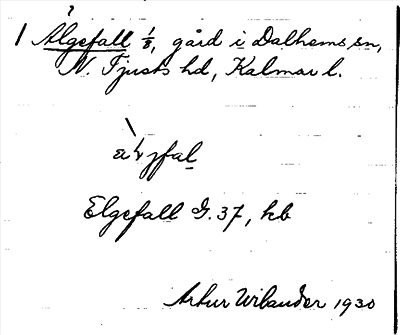 1 Älgefall 1/8, gård i Dalhems sn,
N. Tjusts hd, Kalmar l.
Elgefall G. 37, kb
Artur Wilander 1930